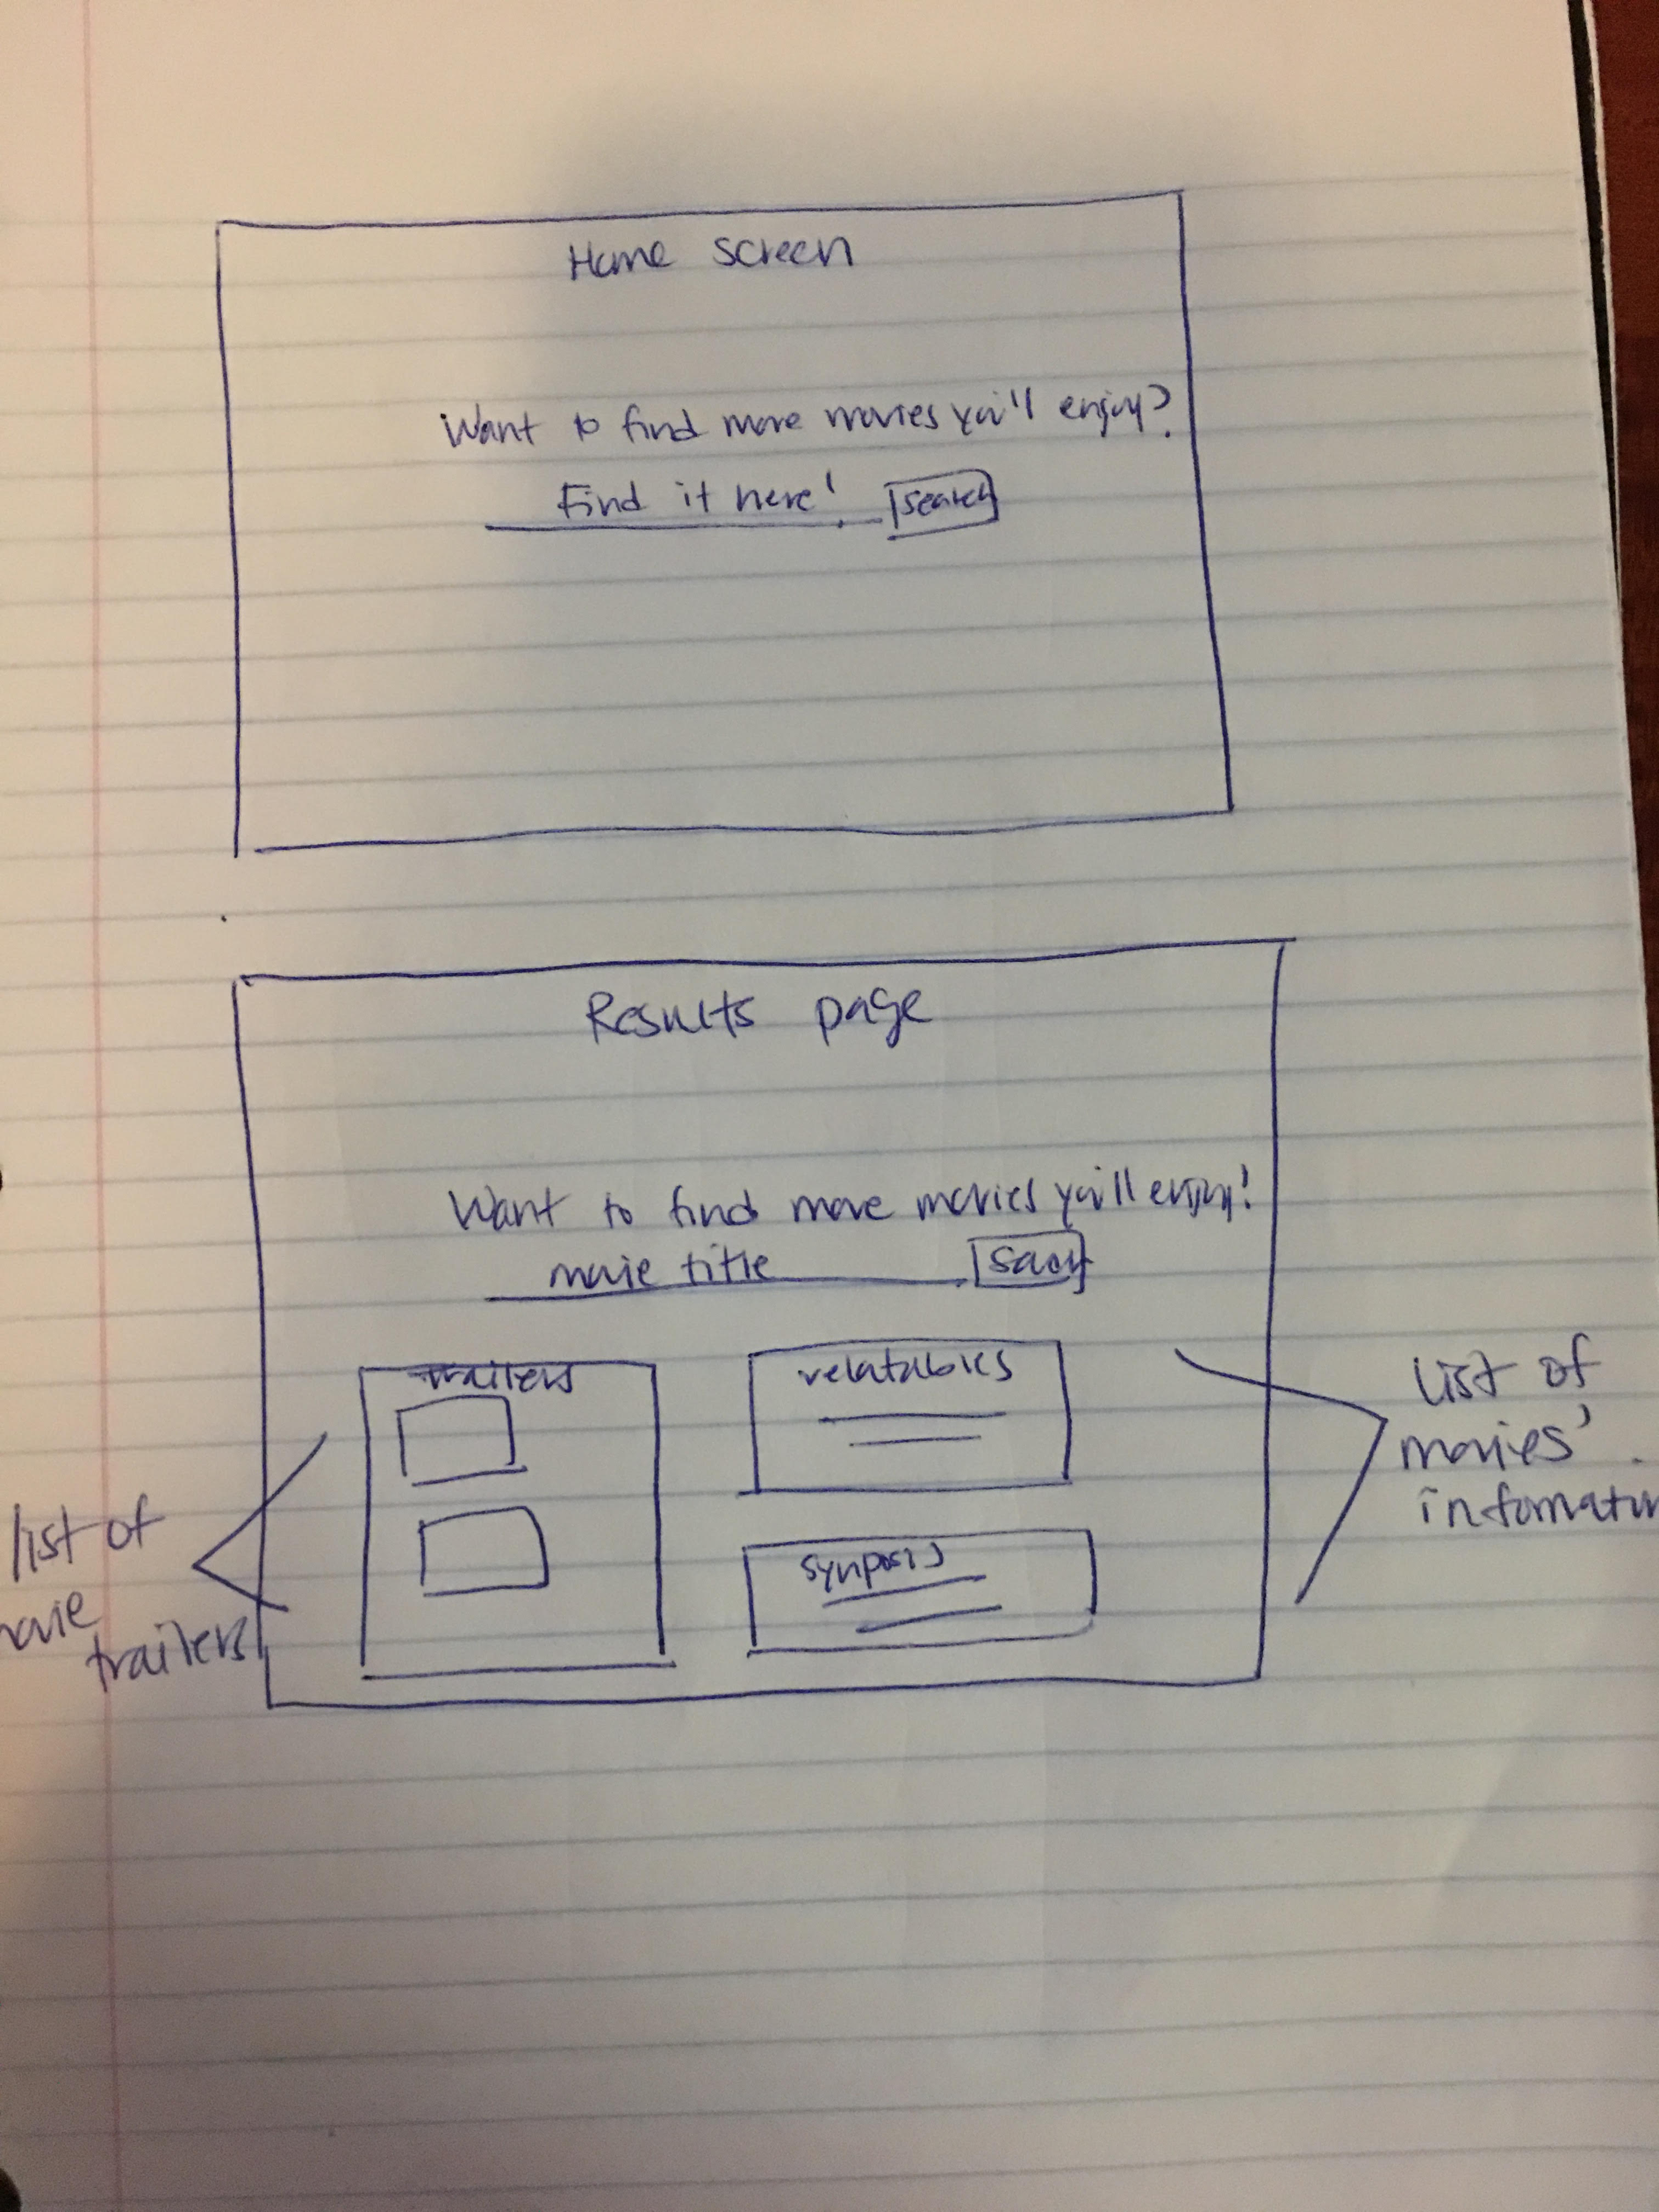 Home screen
Want to find more movies you'll enjoy?
Find it here! search
Results page
Want to find more movies you'll enjoy!
movie title
trailers
relatables
synposis
list of
movie
trailers
list of
movies'
information